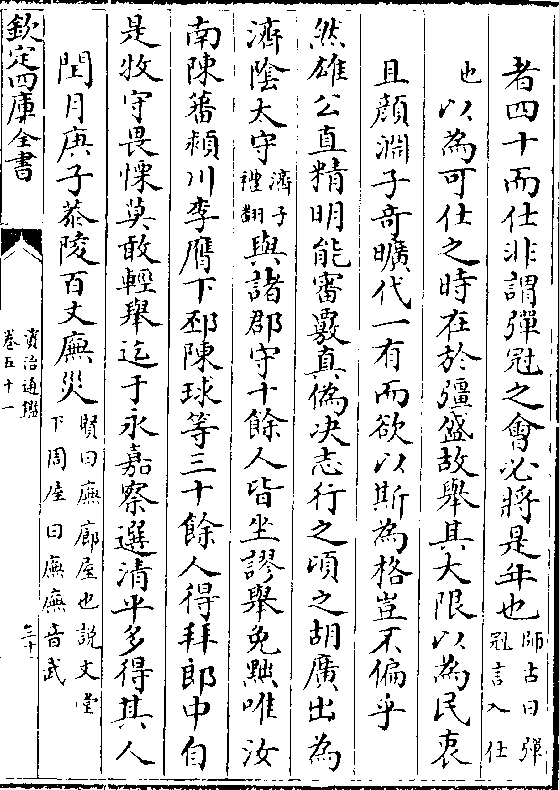 者四十而仕非謂彈冠之會必將是年也師古曰彈冠言入仕
也以為可仕之時在於彊盛故舉其大限以為民衷
且顔淵子奇曠代一有而欲以斯為格豈不偏乎
然雄公直精明能審覈真偽决志行之頃之胡廣出為
濟隂太守濟子禮翻與諸郡守十餘人皆坐謬舉免黜唯汝
南陳蕃潁川李膺下邳陳球等三十餘人得拜郎中自
是牧守畏慄莫敢輕舉迄于永嘉察選清平多得其人
閏月庚子恭陵百丈廡災賢曰廡廊屋也説文堂下周屋曰廡廡音武
欽定四庫全書
資治通鑑
卷五十一
三十